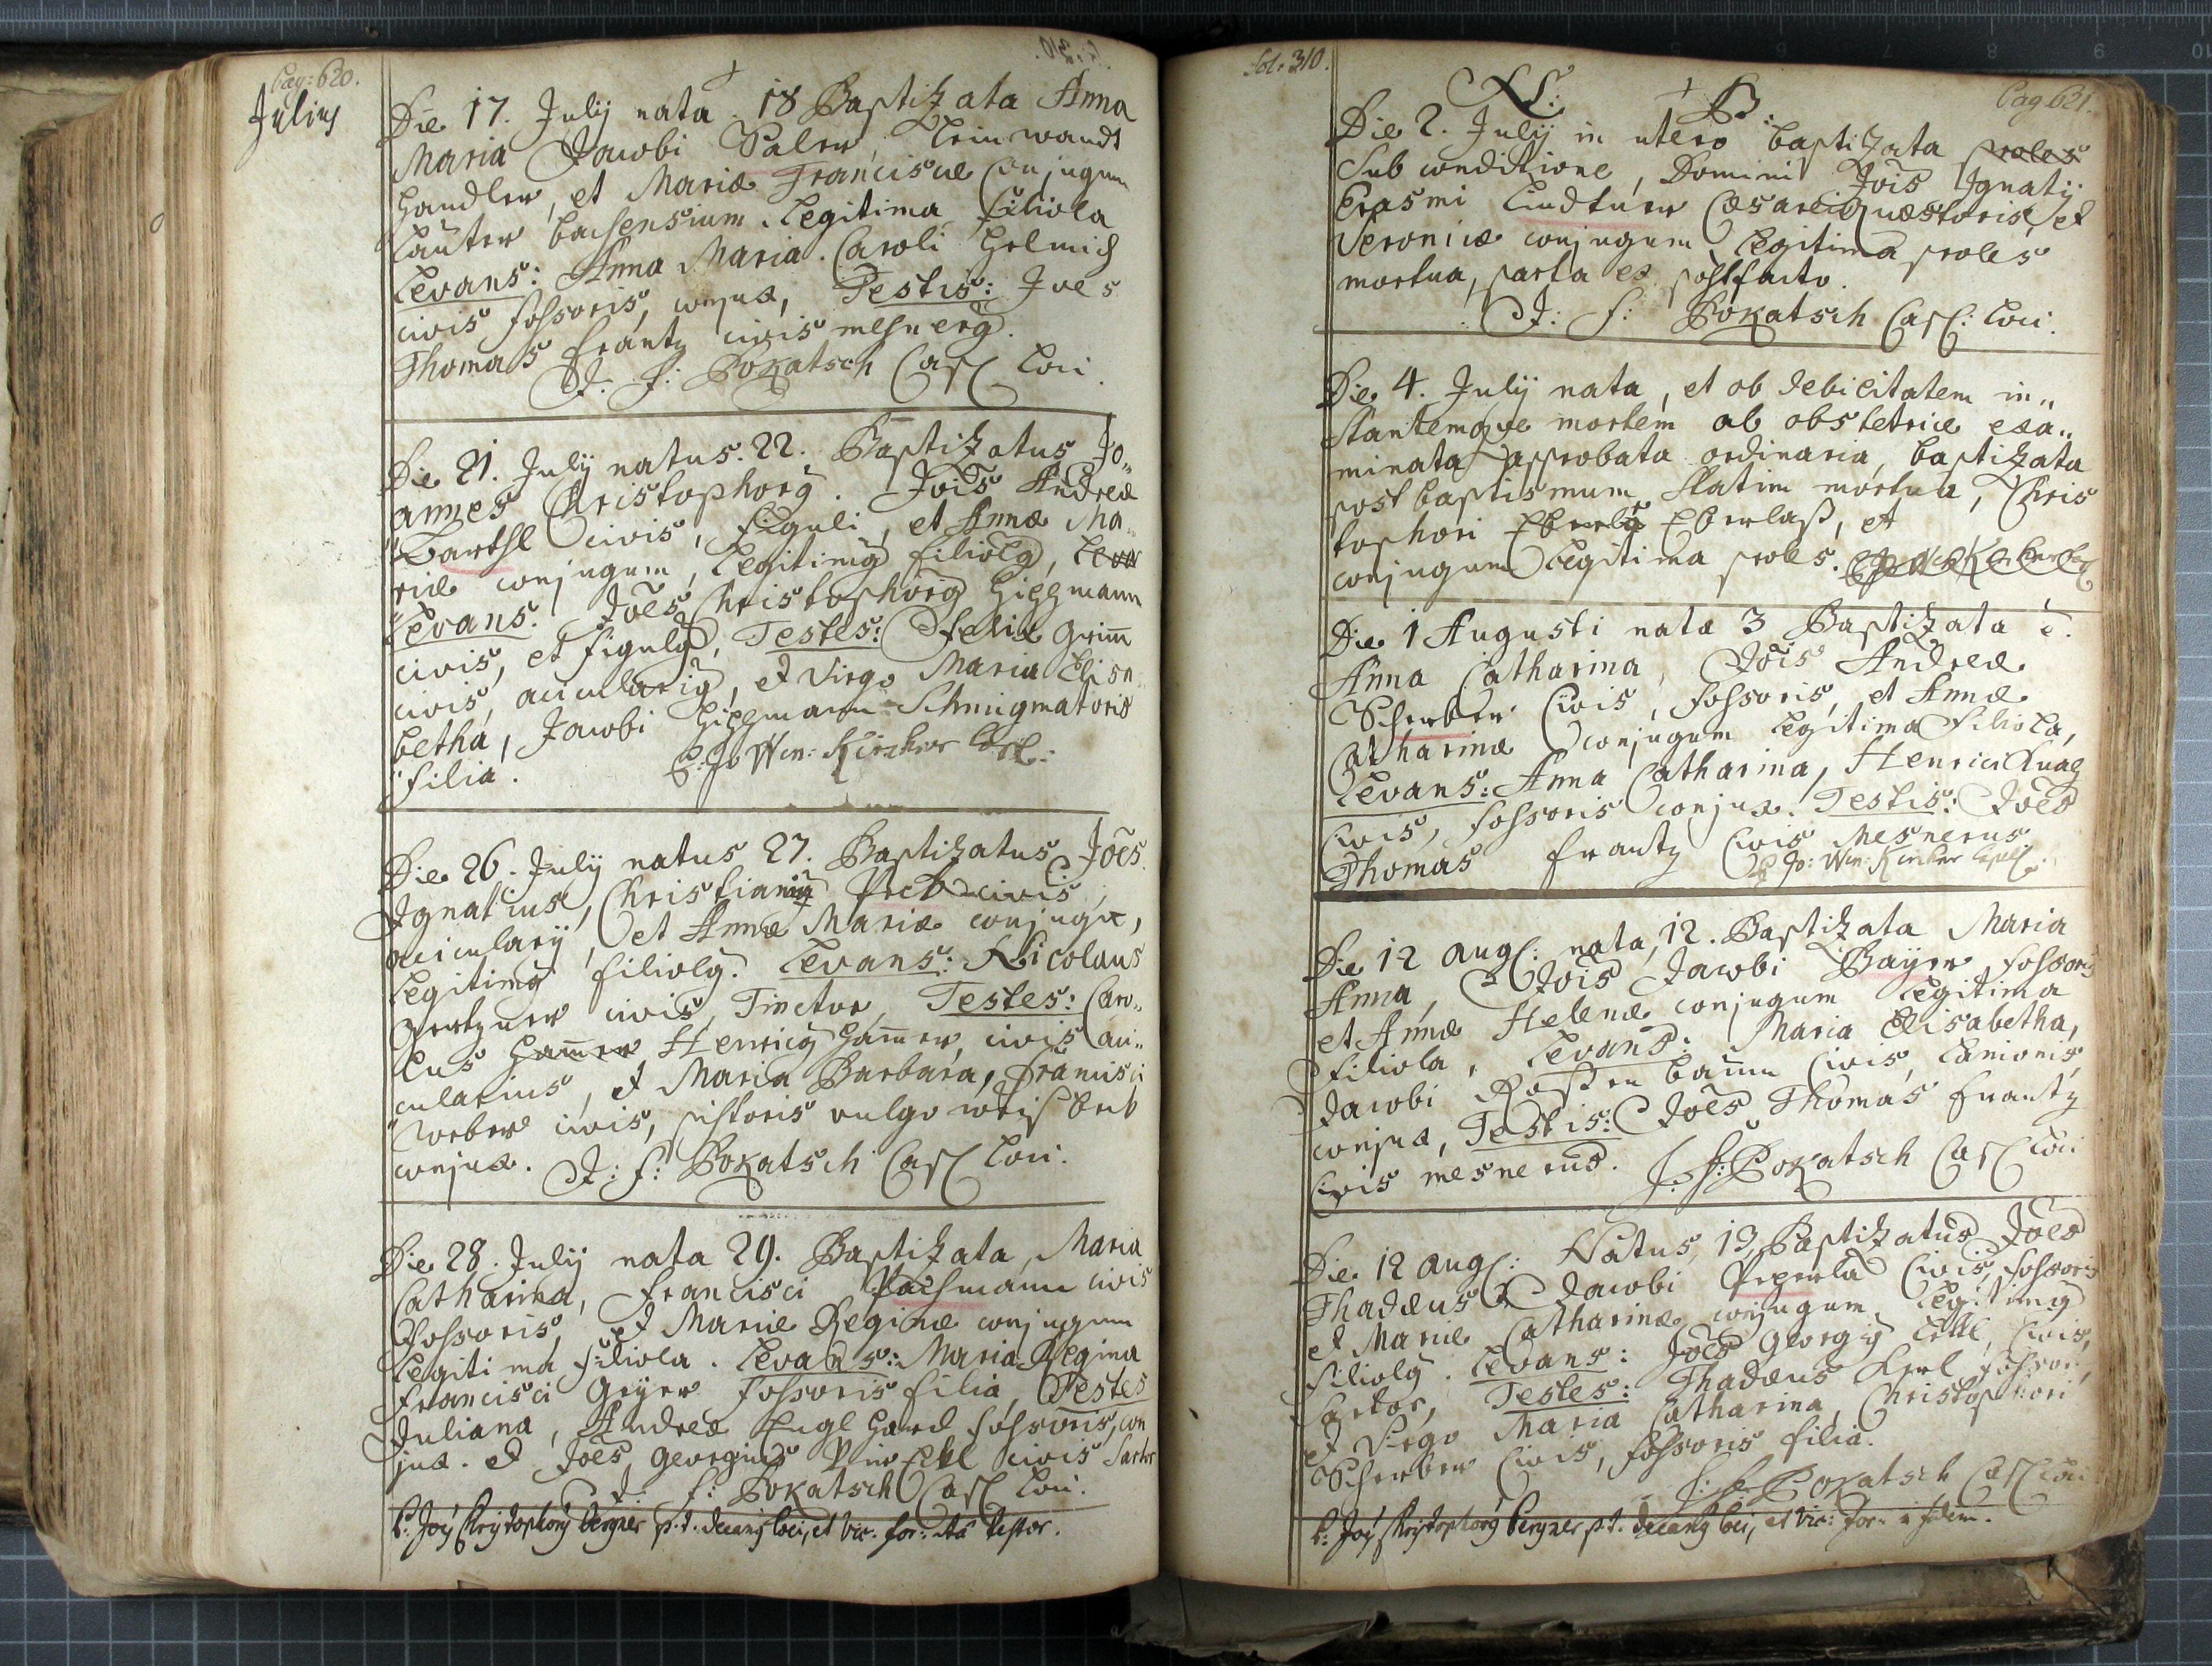 Pag: 620.
Julius
Die 17. Julij nata. 18 Baptizata Anna
Maria Jacobi Saler, Leinwandt
Handler, et Mariæ Franciscæ Conjugum
Lauterbacensium. Legitima filiola
Levans: Anna Maria. Caroli Helmich
civis fossoris, conjux, Testis: Joes
Thomas Frantz civis mesnerg.
J: F: Pokatsch Capl Loci.
Die 21. Julij natus. 22. Baptizatus Jo„
annes Christophorg. Jois Andreæ
Barthl civis, figuli, et Annæ Ma„
riæ conjugum, Legitimg filiolg,
Levans: Joes Christophorg Hippmann
civis, et figulg, Testes: Felix Grim̄
civis, acicularig, et Virgo Maria Elisa„
betha, Jacobi Hippmann Schmigmatoris
filia. Kirchner Capl:
Die 26. Julij natus 27. Baptizatus, Joes.
Ignatius, Christiang civis,
acicularij, et Annæ Mariæ conjugū,
Legitimg filiolg. Levans: Nicolaus
Gertzner civis, Tinctor, Testes: Caro„
lus Ham̄er Henricg Ham̄er, civis aci„
cularius, et Maria Barbara, Francisci
Weber civis, pistoris vulgo weisbek
conjux. J: F: Pokatsch Capl Loci.
Die 28. Julij nata 29. Baptizata, Maria
Catharina, Francisci Pachmann civis
fossoris, et Mariæ Reginæ conjugum
Legitima filiola. Levans: Maria Regina
Francisci Geÿer fossoris filia, Testes
Juliana, Andreæ Engelhard fossoris, con
jux. et Joes Georgius civis Sartor
J: F: Pokatsch Capl Loci.
P: Joēs Christophorg Bergner p.t. decang loci, et Vic: for: ita testor.
Fol: 310.
Pag 621.
Die 2. Julij in utero baptizata proles
sub conditione, Domini Jois Ignatij
Erasmi Lindtner Cæsarei Quæstoris, et
Veronicæ conjugum Legitima proles
mortua, parta ex postfacto.
J: F: Pokatsch Capl: Loci.
Die 4. Julij nata, et ob debilitatem in„
stantemque mortem ab obstetrice exa„
minata approbata ordinaria, baptizata
post baptismum statim mortua, Chris
tophori Eberlaß, et
conjugum Legitima proles.
Die 1 Augusti nata 3 Baptizata ē.
Anna Catharina, Jois Andreæ
Scherber Civis, fossoris, et Annæ
Catharinæ conjugum Legitima filiola,
Levans: Anna Catharina, Henrici
Civis, fossoris conjux. Testis: Joes
Thomas Frantz Civis Mesnerus
Kircher Capl.
Die 12 augl: nata, 12. Baptizata Maria
Anna, Jois Jacobi Baÿer fossoris
et Annæ Helenæ conjugum Legitima
filiola, Levans: Maria Elisabetha,
Jacobi Roßenbaum Civis, Lanionis,
conjux, Testis: Joes Thomas Frantz
Civis mesnerus. J: F: Pokatsch Capl Loci
Die 12 augl: Natus, 13, Baptizatus Joes
Thadæus Jacobi Peperla Civis, fossoris
et Mariæ Catharinæ conjugum, Legitimg
filiolg. Levans: Joes Georgig Civis,
Sartor, Testes: Thadæus fossor,
et Virgo Maria Catharina, Christophori
Scherber Civis, fossoris filia.
J: F: Pokatsch Capl Loci
P: Joēs Christophorg Bergner p.t. decang loci, et Vic: For: